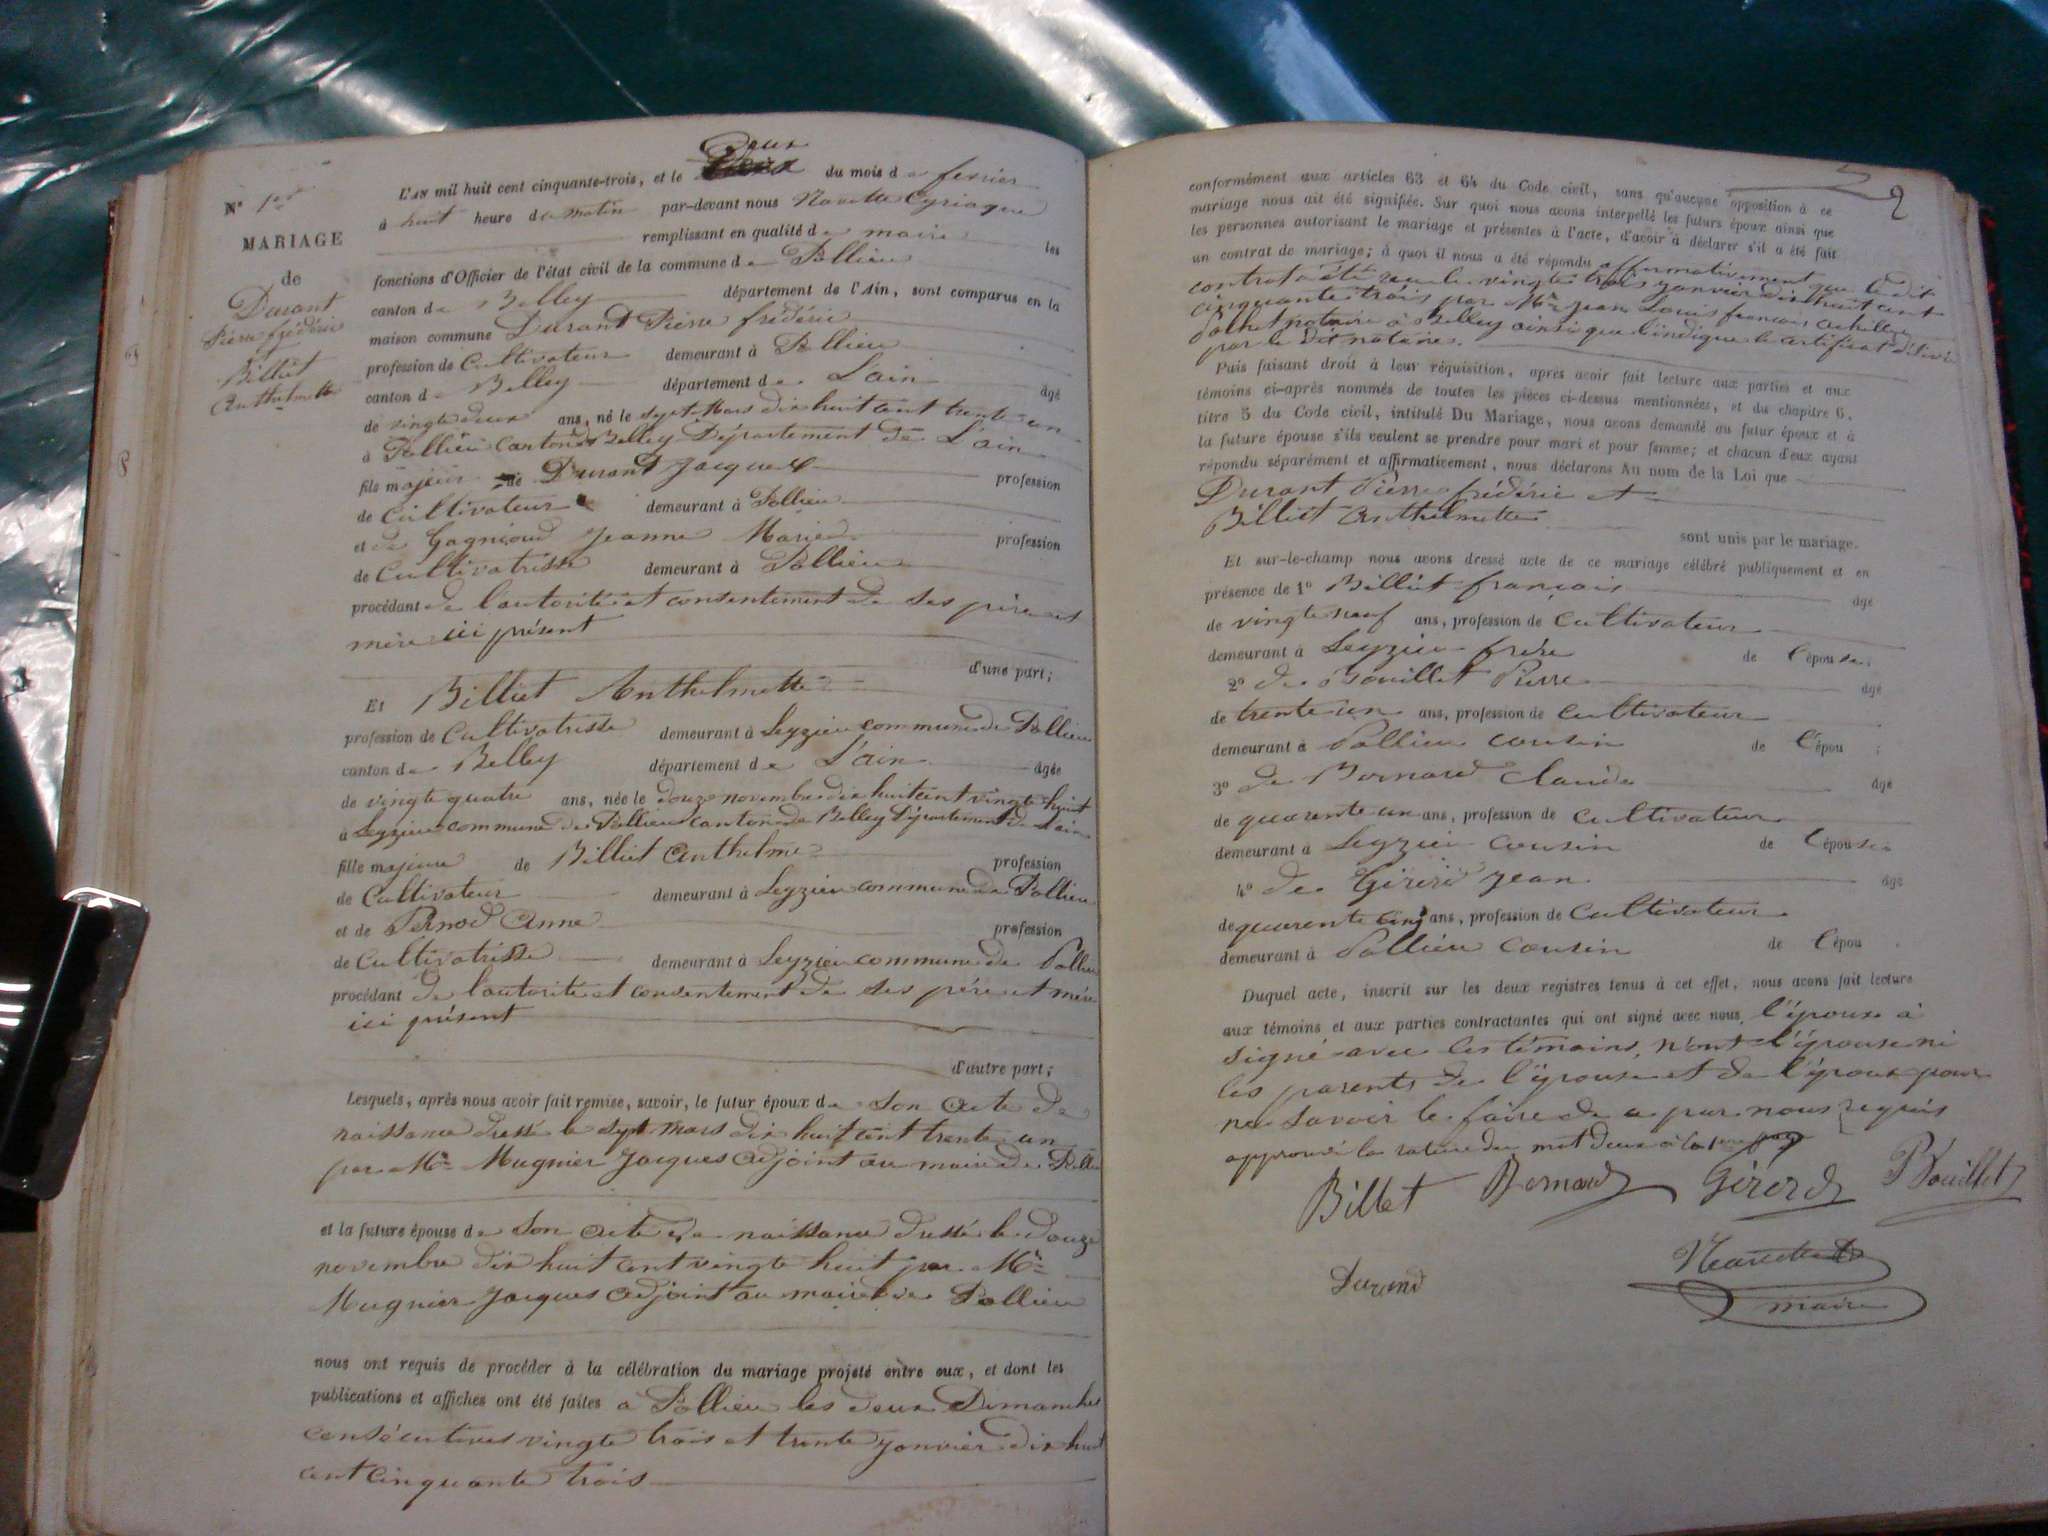 N° 1er
MARIAGE
de
Durant
Pierre frédéric
et
Billiet
Anthelmette
Deux
L'AN mil huit cent cinquante-trois, et le du mois de fevrier
à huit heure du matin par-devant nous Navette Cyriaque
remplissant en qualité de maire les
fonctions d'Officier de l'état civil de la commune de Pollieu
canton de Belley département de l'Ain, sont comparus en la
maison commune Durant Pierre frédéric
profession de Cultivateur demeurant à Pollieu
canton de Belley département de L'ain âgé
de vingt deux ans, né le sept Mars dix huit cent trente un
à Pollieu Canton de Belley Département de L'ain
fils majeur de Durant Jacques profession
de Cultivateur demeurant à Pollieu
et de Gagnioud Jeanne Marie profession
de Cultivatrisse demeurant à Pollieu
procédant de l'autorité et consentement de ses père et
mère ici présent
d'une part;
Et Billiet Anthelmette
profession de Cultivatrisse demeurant à Leyzieu commune de Pollieu
canton de Belley département de L'ain âgée
de vingt quatre ans, née le douze novembre dix huit cent vingt huit
à Leyzieu commune de Pollieu canton de Belley Département de L'ain
fille majeure de Billiet Anthelme profession
de Cultivateur demeurant à Leyzieu commune de Pollieu
et de Pernod Anne profession
de Cultivatrisse demeurant à Leyzieu commune de Pollieu
procédant de l'autorité et consentement de ses père et mère
ici présent
d'autre part;
Lesquels, après nous avoir fait remise, savoir, le futur époux de son Acte de
naissance dressé le sept mars dix huit cent trente un
par Mr Mugnier Jacques adjoint au maire de Pollieu
et la future épouse de Son acte de naissance dressé le douze
novembre dix huit cent vingt huit par Mr
Mugnier Jacques adjoint au maire de Pollieu
nous ont requis de procéder à la célébration du mariage projeté entre eux, et dont les
publications et affiches ont été faites à Pollieu les deux Dimanches
consécutives vingt trois et trente janvier dix huit
cent cinquante trois
2
conformément aux articles 63 et 64 du Code civil, sans qu'aucune opposition à ce
mariage nous ait été signifiée. Sur quoi nous avons interpellé les futurs époux ainsi que
les personnes autorisant le mariage et présentes à l'acte, d'avoir à déclarer s'il a été fait
un contrat de mariage; à quoi il nous a été répondu affirmativement que le dit
contrat a été reçu le vingt trois janvier dix huit cent
cinquante trois par Mr Jean Louis françois achille
notaire à Belley ainsi que l'indique le certificat délivré
par le dit notaire.
Puis faisant droit à leur réquisition, après avoir fait lecture aux parties et aux
témoins ci-après nommés de toutes les pièces ci-dessus mentionnées, et du chapitre 6,
titre 5 du Code civil, intitulé Du Mariage, nous avons demandé au futur époux et à
la future épouse s'ils veulent se prendre pour mari et pour femme; et chacun d'eux ayant
répondu séparément et affirmativement, nous déclarons Au nom de la Loi que
Durant Pierre frédéric et
Billiet Anthelmette
sont unis par le mariage.
Et sur-le-champ nous avons dressé acte de ce mariage célébré publiquement et en
présence de 1° Billiet françois âgé
de vingt neuf ans, profession de Cultivateur
demeurant à Leyzieu frère de l'épouse;
2° de Bouillet Pierre âgé
de trente un ans, profession de Cultivateur
demeurant à Pollieu cousin de l'épou ;
3° de Bernard Claude âgé
de quarente un ans, profession de Cultivateur
demeurant à Leyzieu Cousin de l'épouse
4° de Girerd Jean âgé
de quarente cinq ans, profession de Cultivateur
demeurant à Pollieu cousin de l'épou
Duquel acte, inscrit sur les deux registres tenus à cet effet, nous avons fait lecture
aux témoins et aux parties contractantes qui ont signé avec nous, l'époux à
signé avec les témoins, n'ont l'épouse ni
les parents de l'épouse et de l'époux pour
ne savoir le faire de a par nous requis
approuvé la rature du mot deux à la 1ere page
Billet Bernard Girerd P Bouillet
Durand
Navette
maire